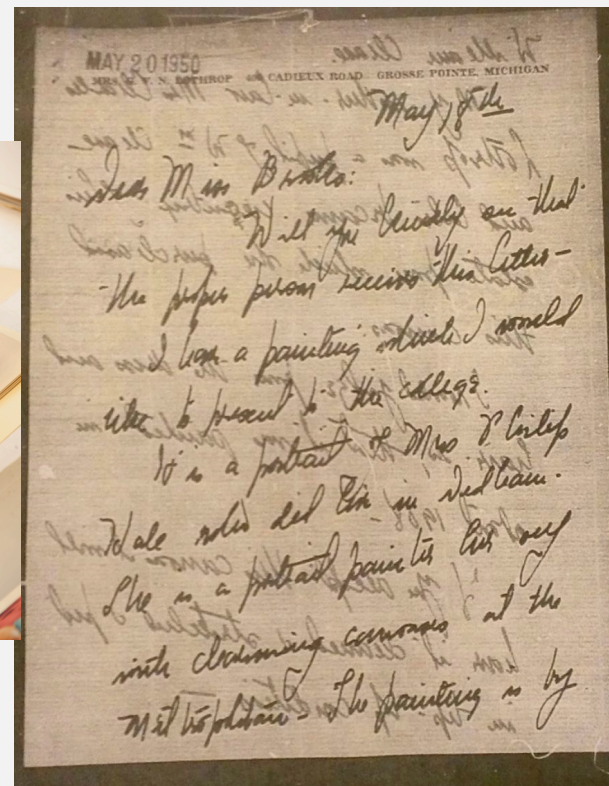 MAY 20 1950
MRS. N. LOTHROP CADIEUX ROAD GROSSE POINTE, MICHIGAN
May 18th
Dear Miss
Will you kindly see that
the proper person receives this letter—
I have a painting which I would
like to present to the college.
It is a portrait of Mrs Philip
Hale who did live in Dedham.
She is a portrait painter
with charming canvases at the
Metropolitan— The painting is by